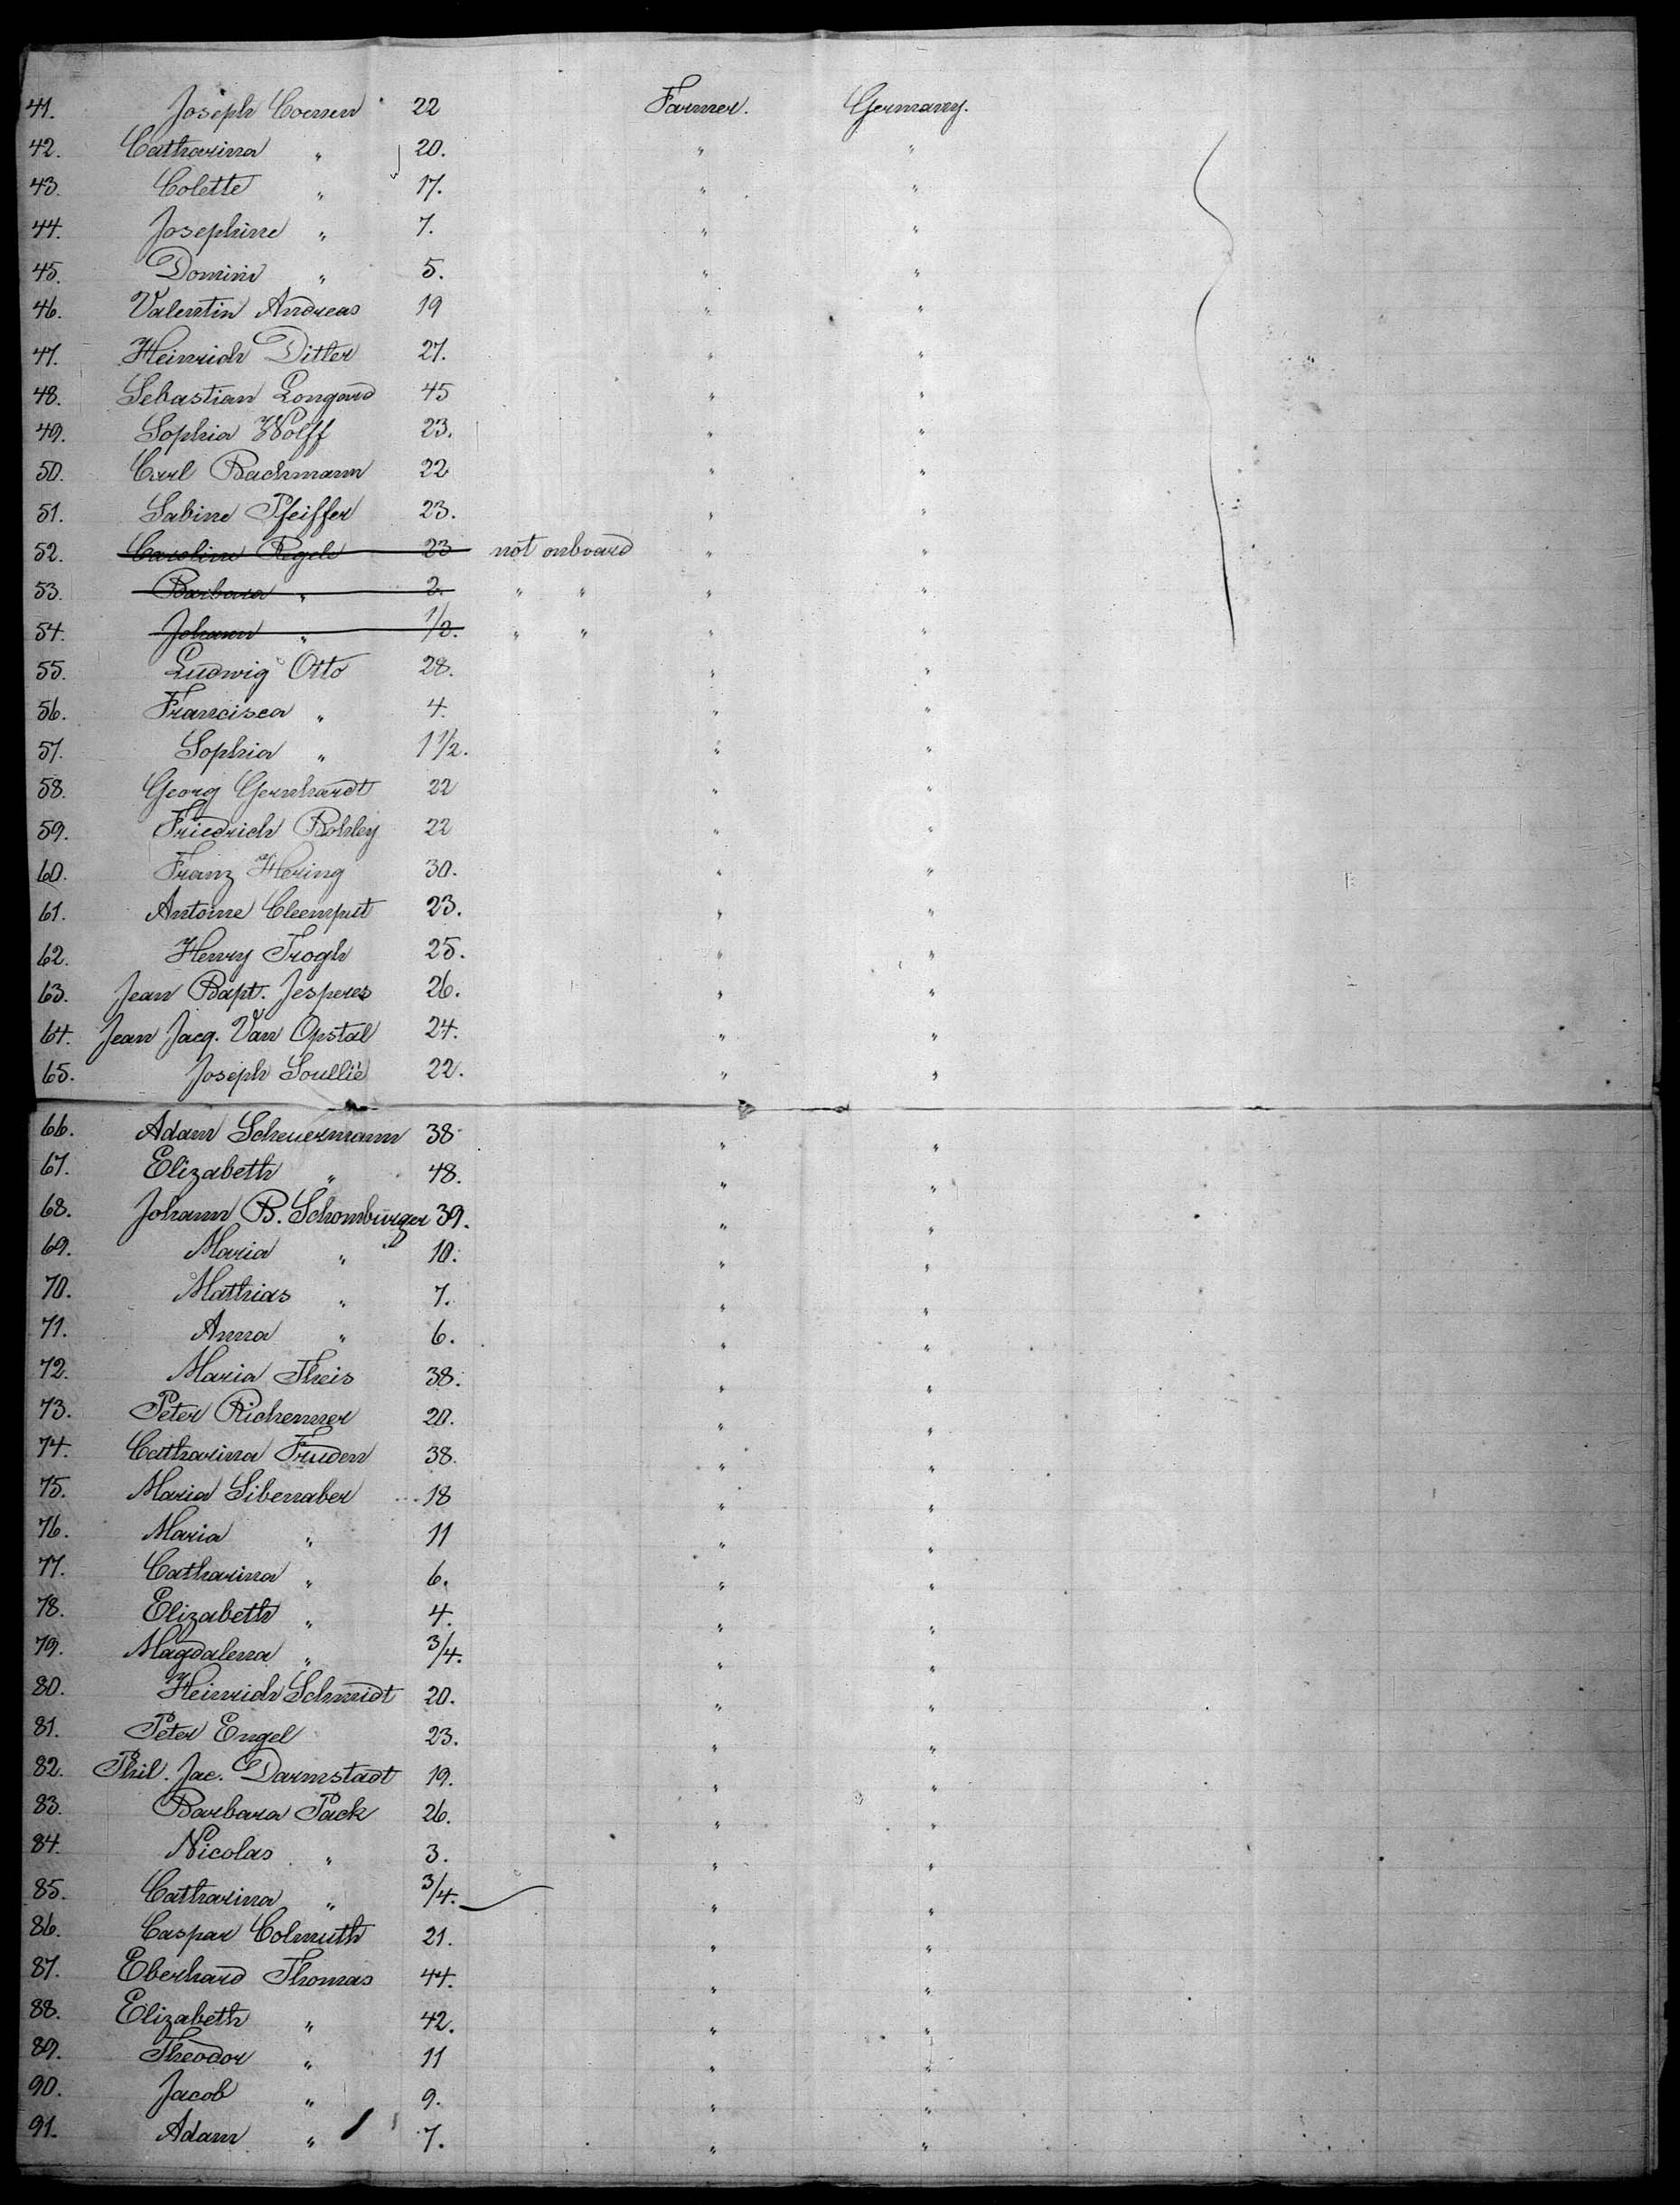 41. Joseph Coenen 22 Farmer. Germany.
42. Catharina " 20. " "
43. Colette " 17. " "
44. Josephine " 7. " "
45. Domini " 5. " "
46. Valentin Andreas 19 " "
47. Heinrich Ditler 27. " "
48. Sebastian Longard 45 " "
49. Sophia Wolff 23. " "
50. Carl Bachmann 22 " "
51. Sabine Pfeiffer 23. " "
52. Caroline Regele 23 not onboard " "
53. Barbara " 2. " " " "
54. Johann " 1/2. " " " "
55. Ludwig Otto 28. " "
56. Francisca " 4. " "
57. Sophia " 1 1/2. " "
58. Georg Gernhardt 22 " "
59. Friedrich Bohley 22 " "
60. Franz Hering 30. " "
61. Antoine Cleemput 23. " "
62. Henry Trogh 25. " "
63. Jean Bapt. Jesperes 26. " "
64. Jean Jacq. Van Opstal 24. " "
65. Joseph Soullié 22. " "
66. Adam Scheuermann 38 " "
67. Elizabeth " 48. " "
68. Johann B. Schombürger 39. " "
69. Maria " 10. " "
70. Mathias " 7. " "
71. Anna " 6. " "
72. Maria Theis 38. " "
73. Peter Richenner 20. " "
74. Catharina Fruden 38. " "
75. Maria Sibenaber 18 " "
76. Maria " 11 " "
77. Catharina " 6. " "
78. Elizabeth " 4. " "
79. Magdalena " 3/4. " "
80. Heinrich Schmidt 20. " "
81. Peter Engel 23. " "
82. Phil. Jac. Darmstadt 19. " "
83. Barbara Pack 26. " "
84. Nicolas " 3. " "
85. Catharina " 3/4. " "
86. Caspar Colmuth 21. " "
87. Eberhard Thomas 44. " "
88. Elizabeth " 42. " "
89. Theodor " 11 " "
90. Jacob " 9. " "
91. Adam " 7. " "